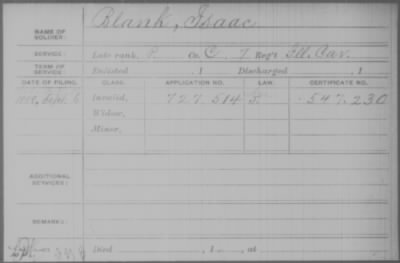 NAME OF SOLDIER: Blank, Isaac
SERVICE: Late rank, P. Co. C, 7 Reg't Ill. Cav.
TERM OF SERVICE: Enlisted , 1 Discharged , 1
DATE OF FILING. CLASS. APPLICATION NO. LAW. CERTIFICATE NO.
Sept. 6 Invalid, 727.514 547.230
Widow,
Minor,
ADDITIONAL SERVICES:
REMARKS:
Died , 1 , at